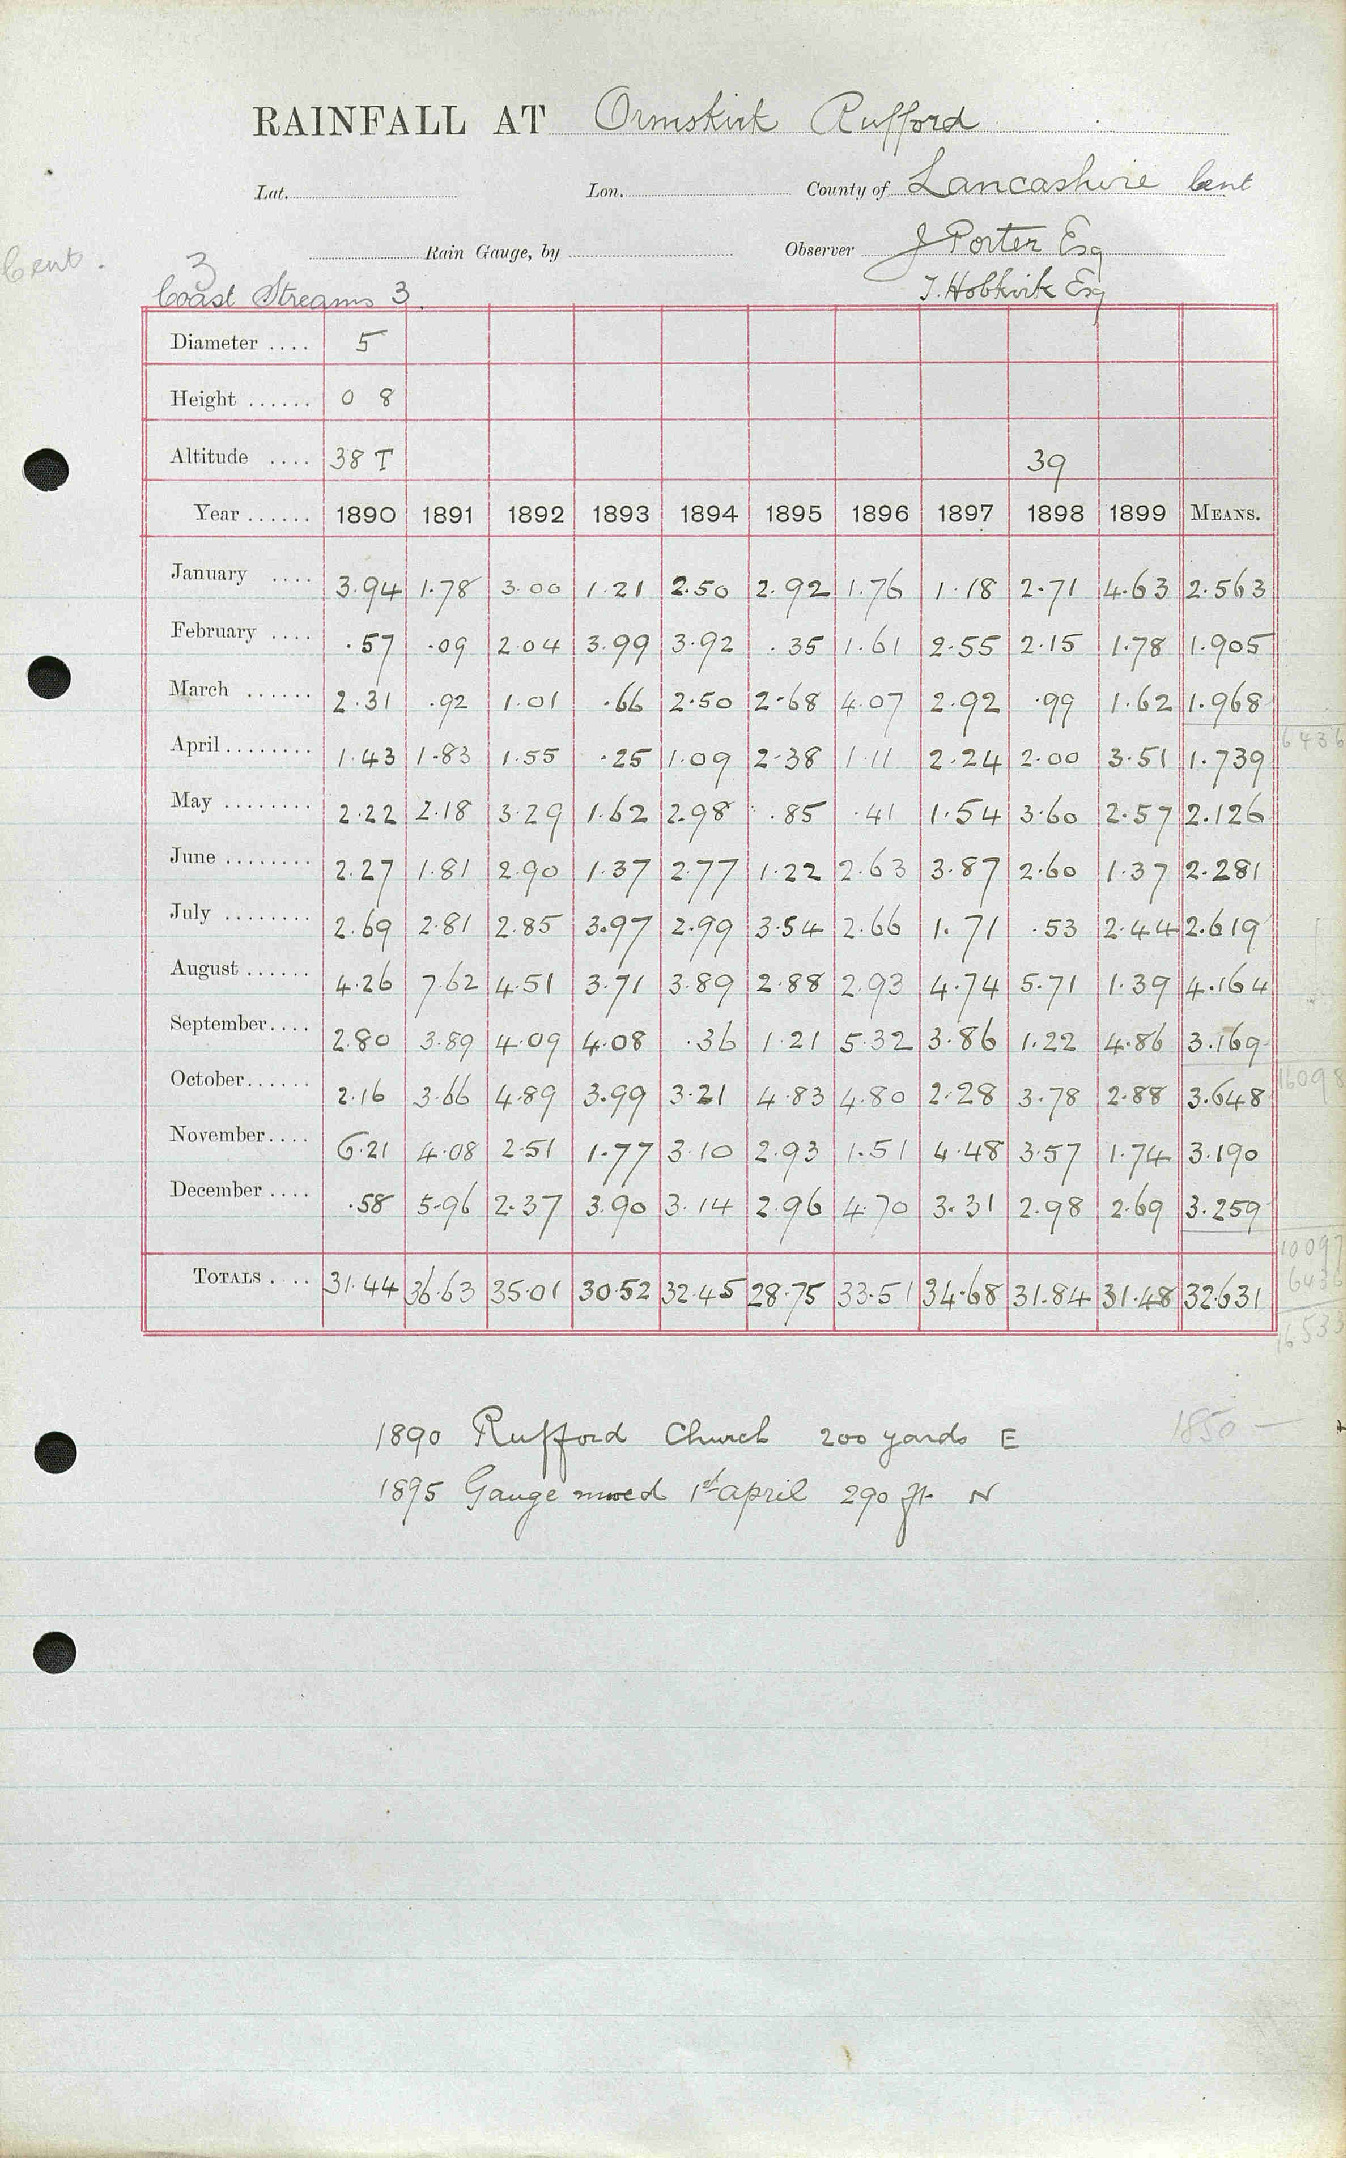 RAINFALL AT Ormskirk Rufford
Lat. Lon. County of Lancashire Cent
Rain Gauge, by Observer J Porter Esq
Cent. 3
Coast Streams 3 J. Hobkirk Esq
Diameter .... 5
Height ...... 0 8
Altitude .... 38 T 39
Year ...... 1890 1891 1892 1893 1894 1895 1896 1897 1898 1899 MEANS.
January .... 3.94 1.78 3.00 1.21 2.50 2.92 1.76 1.18 2.71 4.63 2.563
February .... .57 .09 2.04 3.99 3.92 .35 1.61 2.55 2.15 1.78 1.905
March ...... 2.31 .92 1.01 .66 2.50 2.68 4.07 2.92 .99 1.62 1.968
April ........ 1.43 1.83 1.55 .25 1.09 2.38 1.11 2.24 2.00 3.51 1.739 6436
May ........ 2.22 2.18 3.29 1.62 2.98 .85 .41 1.54 3.60 2.57 2.126
June ........ 2.27 1.81 2.90 1.37 2.77 1.22 2.63 3.87 2.60 1.37 2.281
July ........ 2.69 2.81 2.85 3.97 2.99 3.54 2.66 1.71 .53 2.44 2.619
August ...... 4.26 7.62 4.51 3.71 3.89 2.88 2.93 4.74 5.71 1.39 4.164
September.... 2.80 3.89 4.09 4.08 .36 1.21 5.32 3.86 1.22 4.86 3.169
October...... 2.16 3.66 4.89 3.99 3.21 4.83 4.80 2.28 3.78 2.88 3.648 16098
November.... 6.21 4.08 2.51 1.77 3.10 2.93 1.51 4.48 3.57 1.74 3.190
December .... .58 5.96 2.37 3.90 3.14 2.96 4.70 3.31 2.98 2.69 3.259
10097
TOTALS .... 31.44 36.63 35.01 30.52 32.45 28.75 33.51 34.68 31.84 31.48 32.631 6436
16533
1890 Rufford Church 200 yards E 1850 —
1895 Gauge moved 1st April 290 ft. N